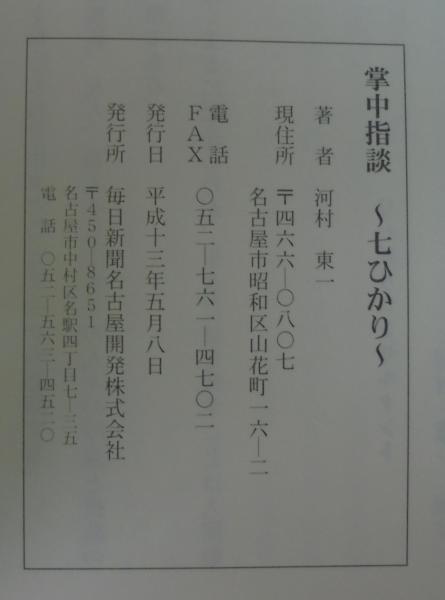 掌中指談　～七ひかり～
著　者　河村　東一
現住所　〒四六六―〇八〇七
名古屋市昭和区山花町一六―二
電　話
ＦＡＸ　〇五二―七六一―四七〇二
発行日　平成十三年五月八日
発行所　毎日新聞名古屋開発株式会社
〒４５０―８６５１
名古屋市中村区名駅四丁目七―三五
電　話　〇五二―五六三―四五二〇